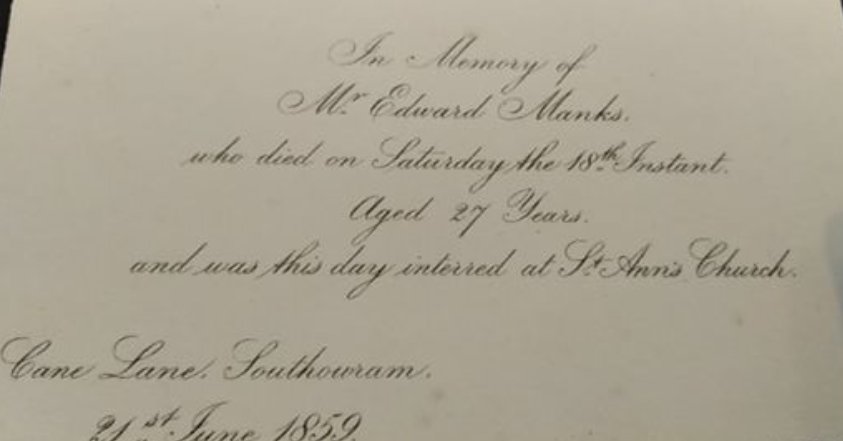 In Memory of
Mr. Edward Manks.
who died on Saturday the 18th Instant.
Aged 27 Years.
and was this day interred at St. Ann's Church.
Cane Lane. Southowram.
21st June 1859.